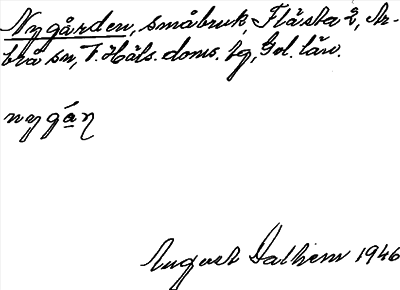 Nygården, småbruk, Flästa 2, Ar-
brå sn, V. Häls. doms. sg, Gvl. län.
nygán
August Dalhem 1946